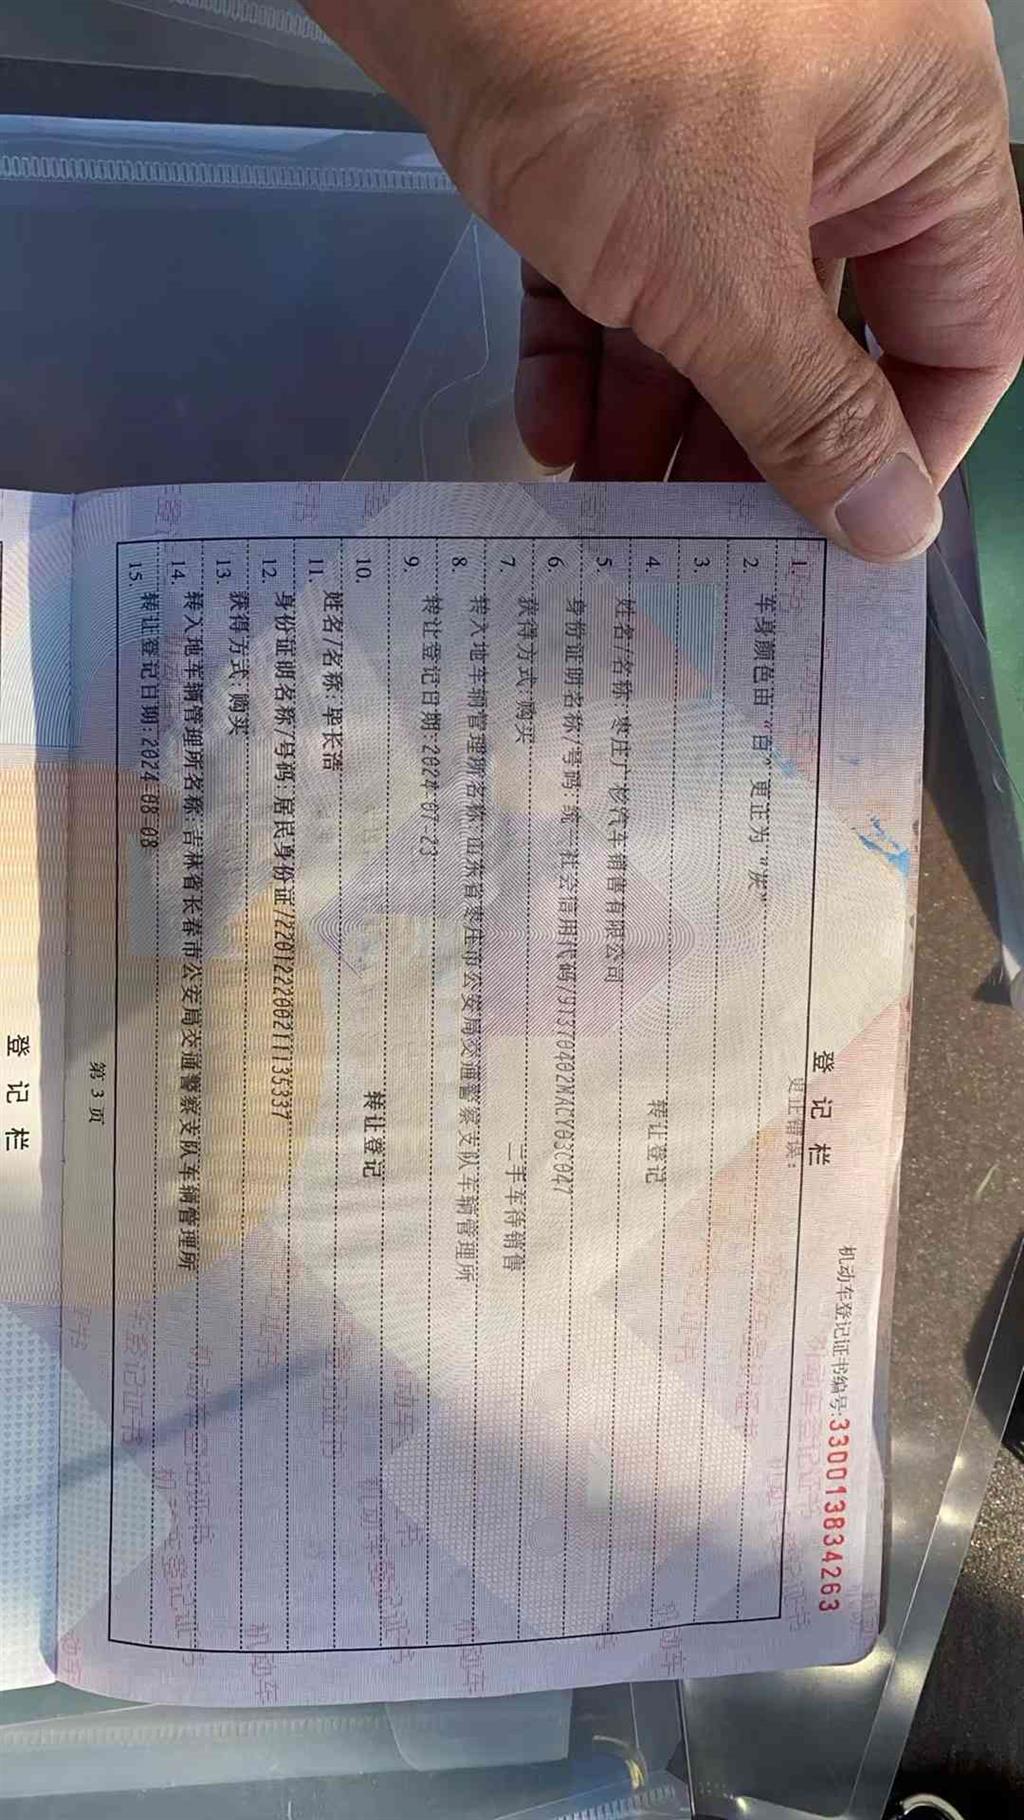 机动车登记证书编号:330013834263
登记栏
1. 更正错误:
2. 车身颜色由“白”更正为“灰”
3.
4. 转让登记
5. 姓名/名称:枣庄广杉汽车销售有限公司
6. 身份证明名称/号码:统一社会信用代码/91370402MACY03C047
7. 获得方式:购买 二手车待销售
8. 转入地车辆管理所名称:山东省枣庄市公安局交通警察支队车辆管理所
9. 转让登记日期:2024-07-23
10. 转让登记
11. 姓名/名称:毕长浯
12. 身份证明名称/号码:居民身份证/220122200211135337
13. 获得方式:购买
14. 转入地车辆管理所名称:吉林省长春市公安局交通警察支队车辆管理所
15. 转让登记日期:2024-08-08
第 3 页
登记栏